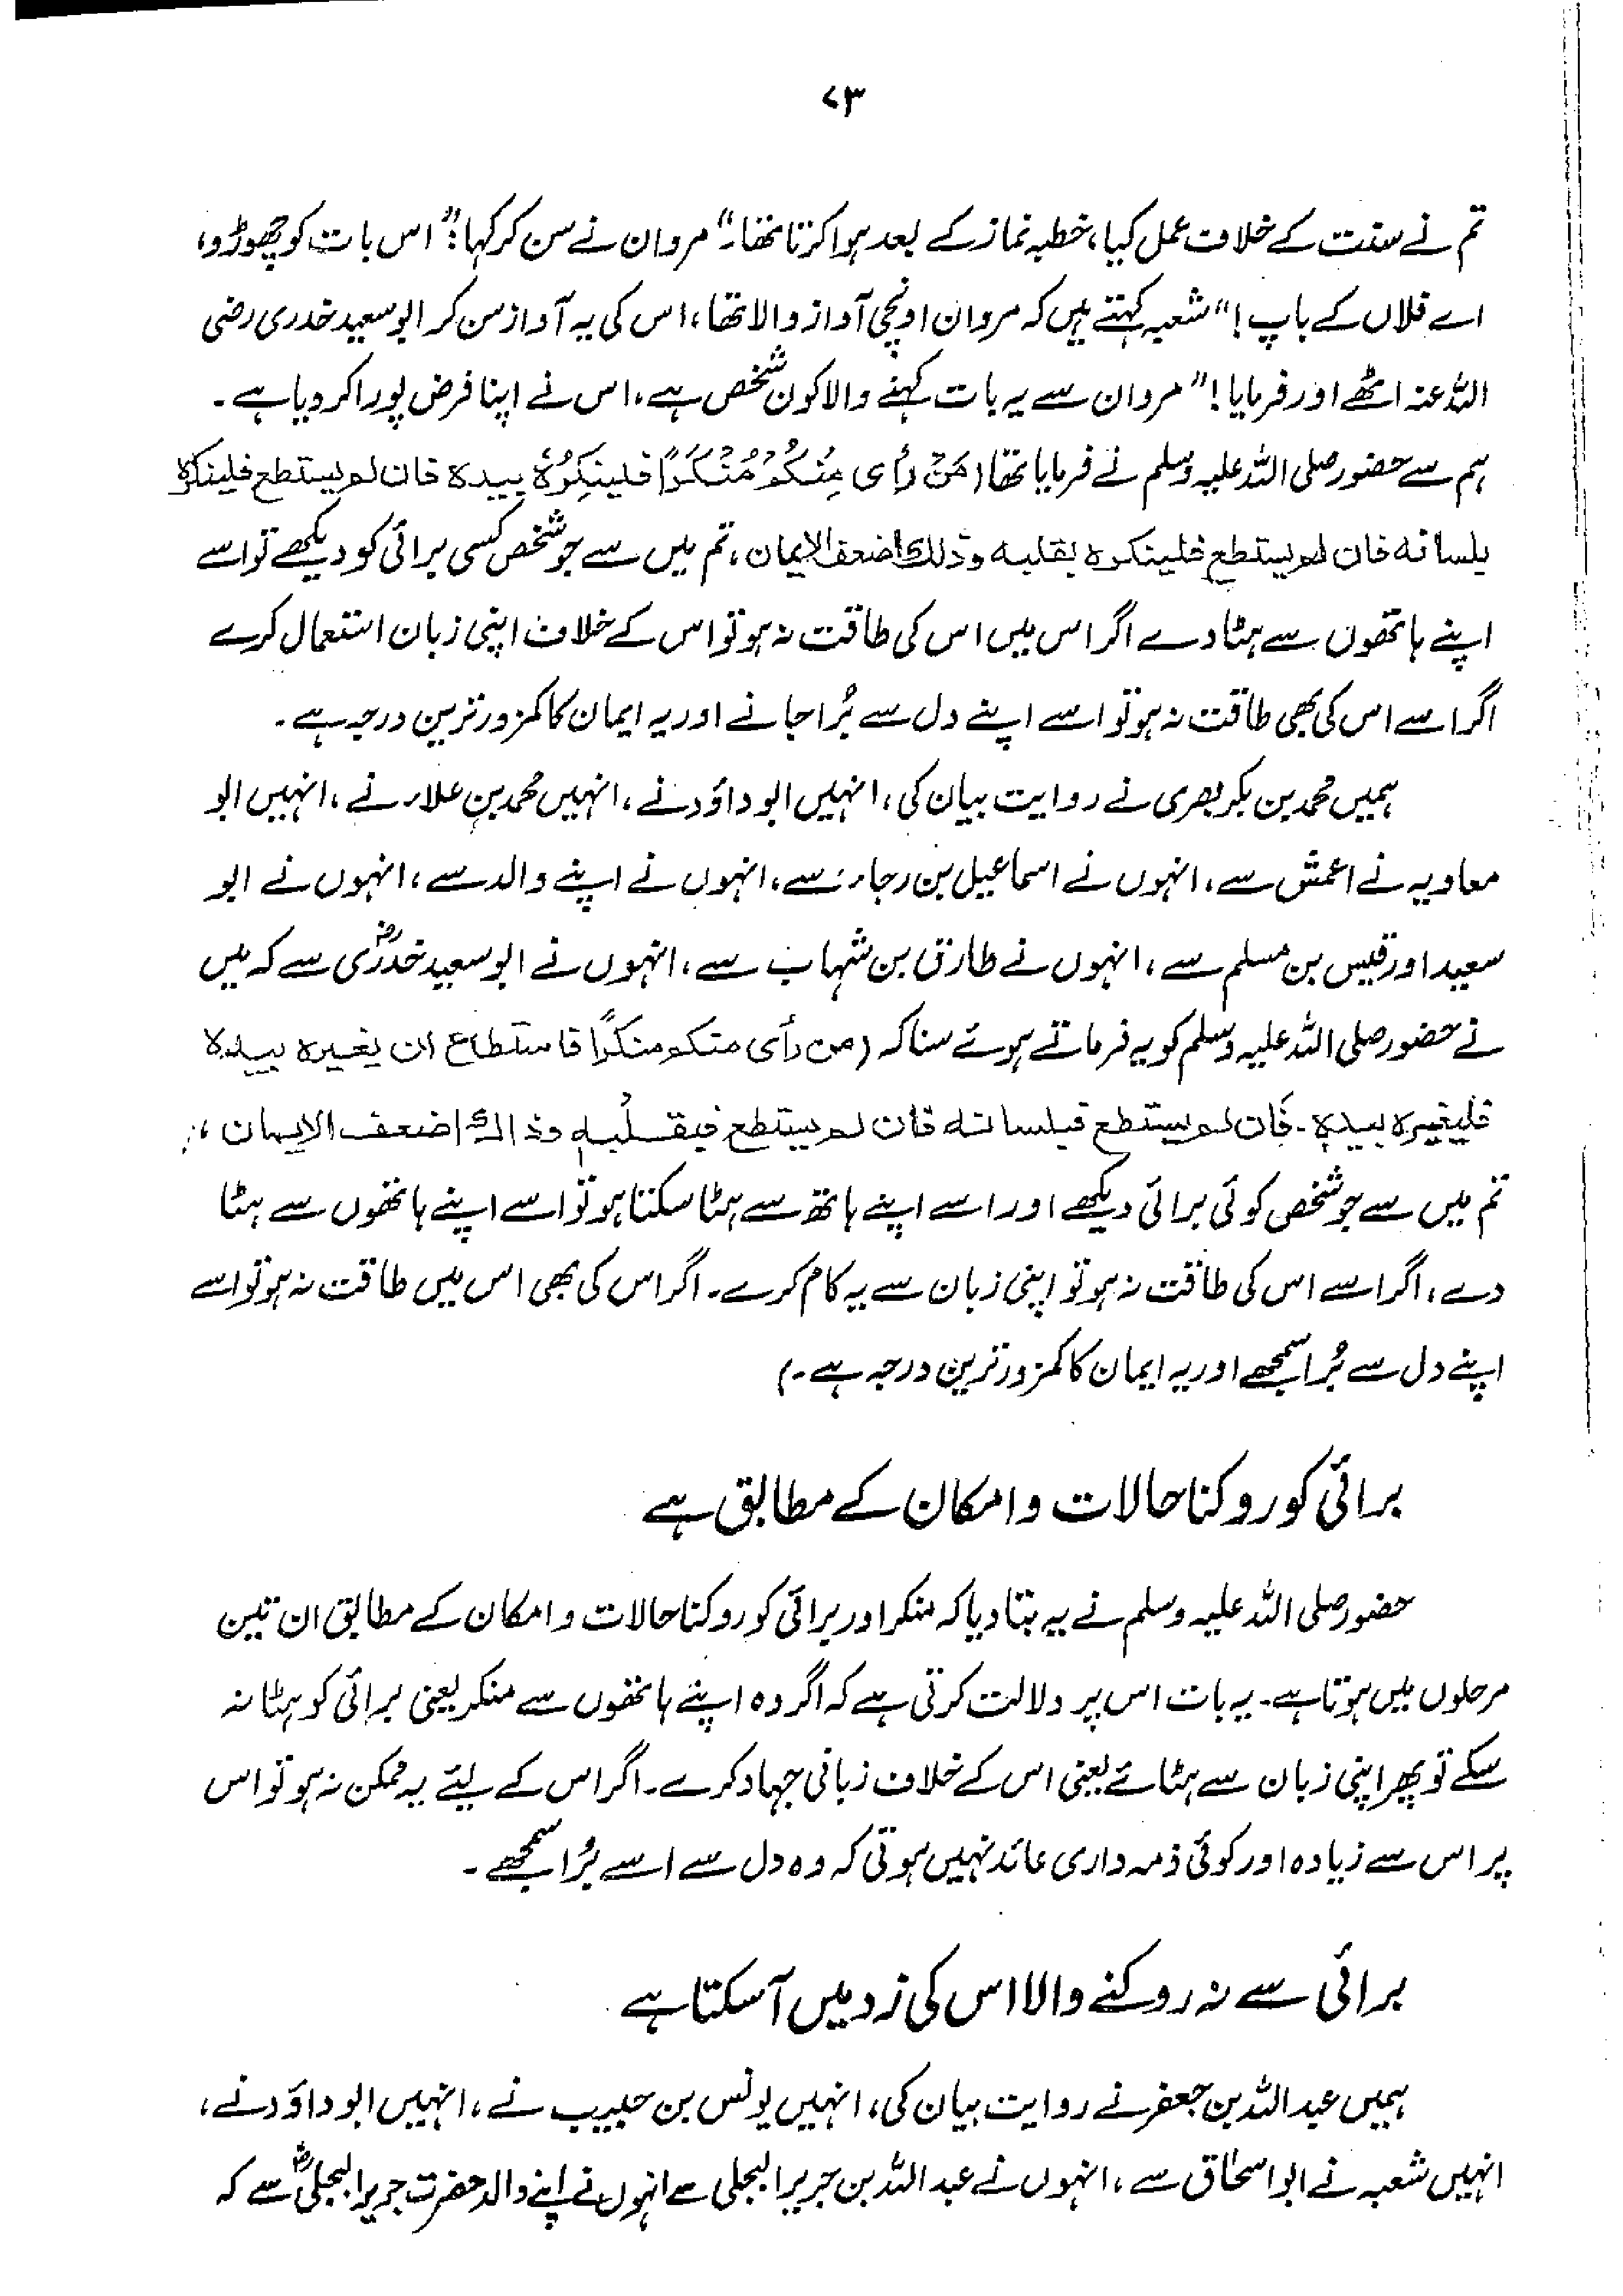 ۷۳
تم نے سنت کے خلاف عمل کیا، خطبہ نماز کے بعد ہوا کرتا تھا۔" مروان نے سن کر کہا: "اس بات کو چھوڑو،
اے فلاں کے باپ!" شعبہ کہتے ہیں کہ مروان اونچی آواز والا تھا، اس کی یہ آواز سن کر ابوسعید خدری رضی
اللہ عنہ اٹھے اور فرمایا! "مروان سے یہ بات کہنے والا کون شخص ہے، اس نے اپنا فرض پورا کر دیا ہے۔
ہم سے حضور صلی اللہ علیہ وسلم نے فرمایا تھا (مَنْ رأی مِنْکُمْ مُنْکَرًا فلینکِرُہُ بیدہ فان لم یستطع فلینکرہ
بلسانہ فان لم یستطع فلینکرہ بقلبہ وذلك اضعف الایمان، تم میں سے جو شخص کسی برائی کو دیکھے تو اسے
اپنے ہاتھوں سے ہٹا دے اگر اس میں اس کی طاقت نہ ہو تو اس کے خلاف اپنی زبان استعمال کرے
اگر اسے اس کی بھی طاقت نہ ہو تو اسے اپنے دل سے بُرا جانے اور یہ ایمان کا کمزور ترین درجہ ہے۔
ہمیں محمد بن بکر بصری نے روایت بیان کی، انہیں ابوداؤد نے، انہیں محمد بن علاء نے، انہیں ابو
معاویہ نے اعمش سے، انہوں نے اسماعیل بن رجاء سے، انہوں نے اپنے والد سے، انہوں نے ابو
سعید اور قیس بن مسلم سے، انہوں نے طارق بن شہاب سے، انہوں نے ابوسعید خدریؓ سے کہ میں
نے حضور صلی اللہ علیہ وسلم کو یہ فرماتے ہوئے سنا کہ (من رأی منکم منکرًا فاستطاع ان یغیرہ بیدہ
فلیغیرہ بیدہ۔ فَان لم یستطع فبلسانہ فان لم یستطع فبقلبہ وذالك اضعف الایمان،
تم میں سے جو شخص کوئی برائی دیکھے اور اسے اپنے ہاتھ سے ہٹا سکتا ہو تو اسے اپنے ہاتھوں سے ہٹا
دے، اگر اسے اس کی طاقت نہ ہو تو اپنی زبان سے یہ کام کرے۔ اگر اس کی بھی اس میں طاقت نہ ہو تو اسے
اپنے دل سے بُرا سمجھے اور یہ ایمان کا کمزور ترین درجہ ہے۔)
برائی کو روکنا حالات و امکان کے مطابق ہے
حضور صلی اللہ علیہ وسلم نے یہ بتا دیا کہ منکر اور برائی کو روکنا حالات و امکان کے مطابق ان تین
مرحلوں میں ہوتا ہے۔ یہ بات اس پر دلالت کرتی ہے کہ اگر وہ اپنے ہاتھوں سے منکر یعنی برائی کو ہٹا نہ
سکے تو پھر اپنی زبان سے ہٹائے یعنی اس کے خلاف زبانی جہاد کرے۔ اگر اس کے لیئے یہ ممکن نہ ہو تو اس
پر اس سے زیادہ اور کوئی ذمہ داری عائد نہیں ہوتی کہ وہ دل سے اسے بُرا سمجھے۔
برائی سے نہ روکنے والا اس کی زد میں آ سکتا ہے
ہمیں عبداللہ بن جعفر نے روایت بیان کی، انہیں یونس بن حبیب نے، انہیں ابوداؤد نے،
انہیں شعبہ نے ابواسحٰق سے، انہوں نے عبداللہ بن جریر البجلی سے انہوں نے اپنے والد حضرت جریر البجلیؓ سے کہ